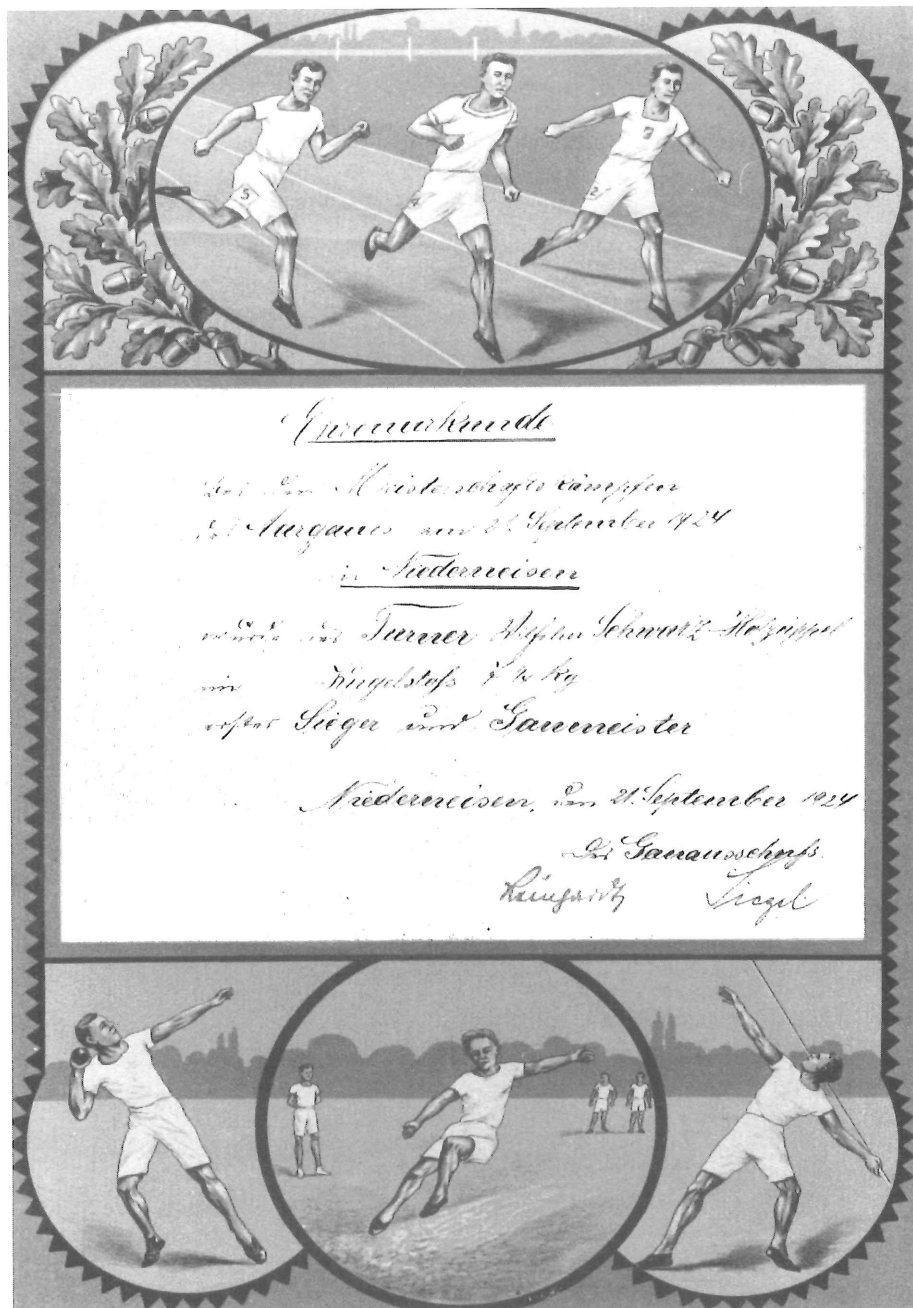 Ehrenurkunde
Bei den Meisterschaftskämpfen
des Aargaues am 21. September 1924
in Niederneisen
wurde der Turner Wilhelm Schwarz-Holzappel
im Kugelstoß 7 ¼ kg
erster Sieger und Gaumeister
Niederneisen, den 21. September 1924
Der Gauausschuß.
Leinhardt Siegel
5
4
2